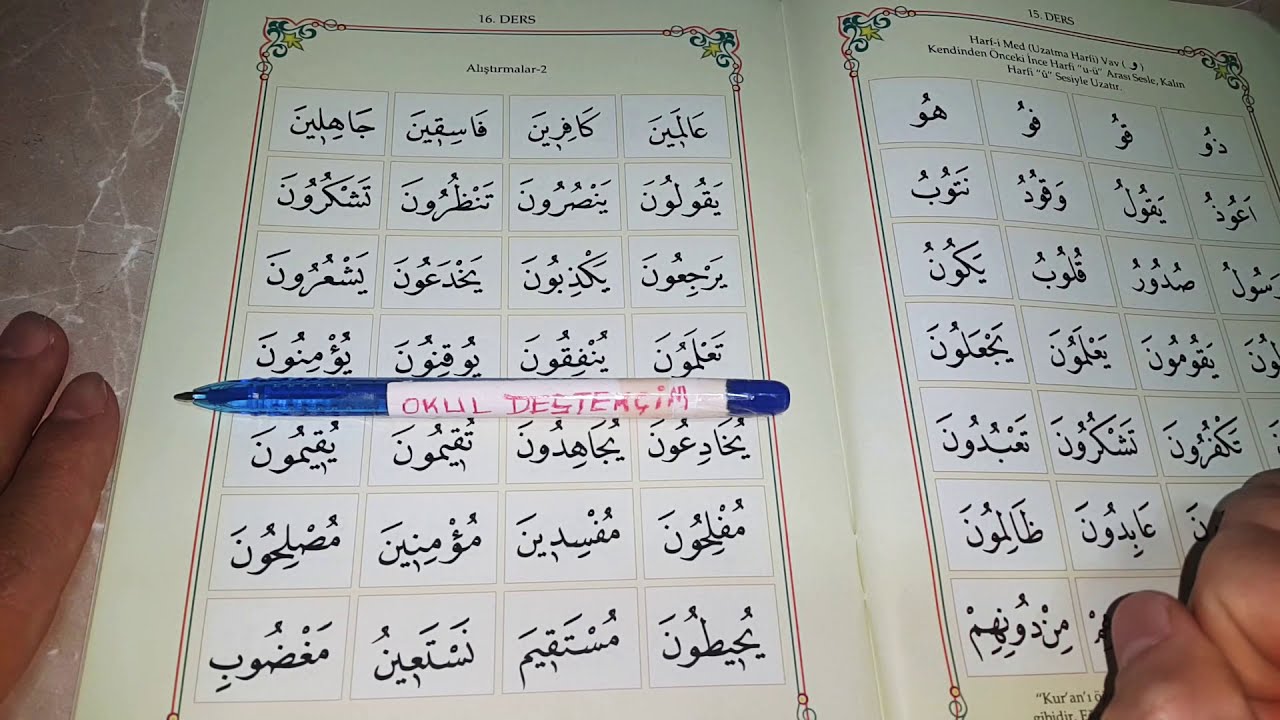 16. DERS
Alıştırmalar-2
عَالَمِينَ كَافِرِينَ فَاسِقِينَ جَاهِلِينَ
يَقُولُونَ يَنْصُرُونَ تَنْظُرُونَ تَشْكُرُونَ
يَرْجِعُونَ يَكْذِبُونَ يَخْدَعُونَ يَشْعُرُونَ
تَعْلَمُونَ يُنْفِقُونَ يُوقِنُونَ يُؤْمِنُونَ
OKUL DESTEKÇİM
يُخَادِعُونَ يُجَاهِدُونَ تُقِيمُونَ يُقِيمُونَ
مُفْلِحُونَ مُفْسِدِينَ مُؤْمِنِينَ مُصْلِحُونَ
يُحِيطُونَ مُسْتَقِيمَ نَسْتَعِينُ مَغْضُوبِ
15. DERS
Harf-i Med (Uzatma Harfi) Vav ( و )
Kendinden Önceki İnce Harfi "u-ü" Arası Sesle, Kalın
Harfi "û" Sesiyle Uzatır.
ذُو قُو فُو هُو
اَعُوذُ يَقُولُ وَقُودُ نَتُوبُ
صُدُورُ قُلُوبُ يَكُونُ
يَقُومُونَ يَعْلَمُونَ يَجْعَلُونَ
تَكْفُرُونَ تَشْكُرُونَ تَعْبُدُونَ
عَابِدُونَ ظَالِمُونَ
مِنْ دُونِهِمْ
"Kur'an'ı
gibidir.